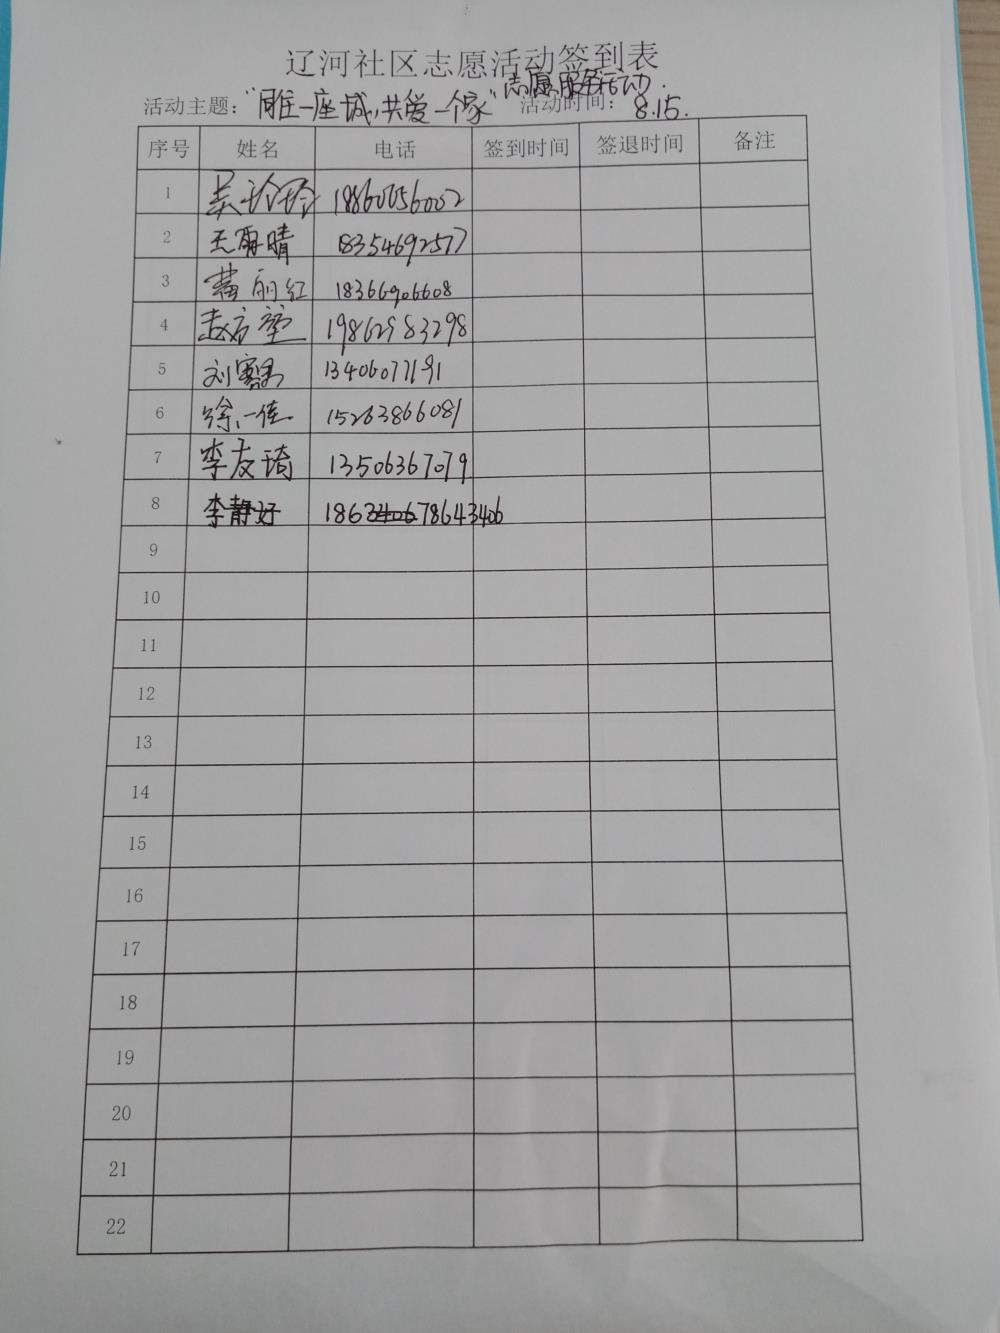 辽河社区志愿活动签到表
活动主题："同住一座城，共爱一个家"志愿服务活动. 活动时间：8.15.
序号 姓名 电话 签到时间 签退时间 备注
1 吴玲玲
2 王雨晴 18354692577
3 丽红 18366906608
4 赵 19862983298
5 刘 13406077191
6 徐一佳 15263866081
7 李友琦 13506367079
8 李静好 18678643406
9
10
11
12
13
14
15
16
17
18
19
20
21
22